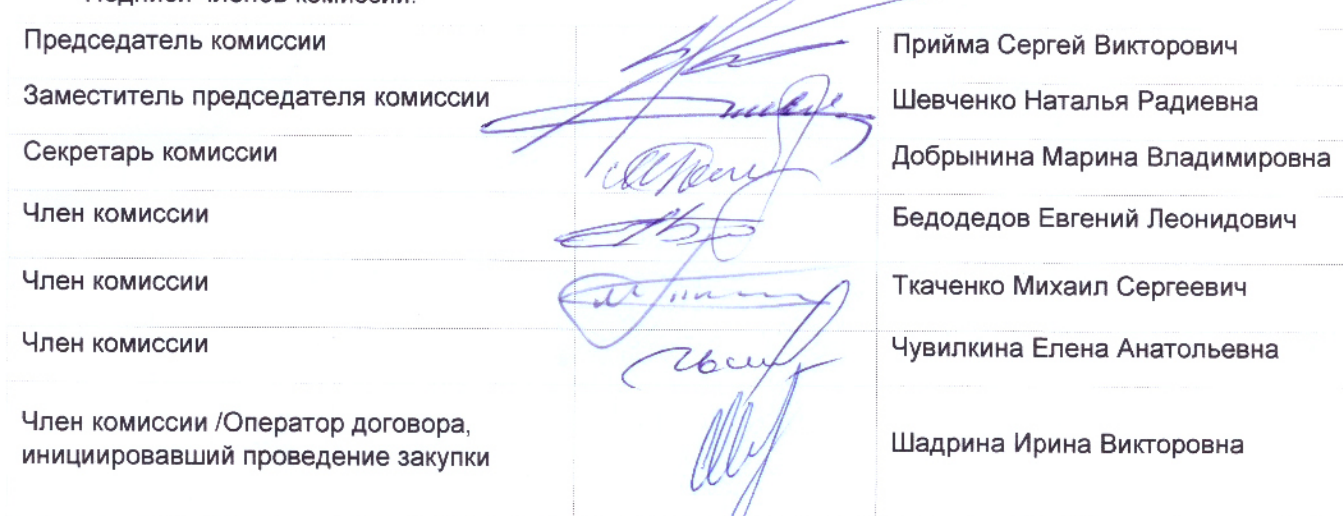 Подписи членов комиссии:
Председатель комиссии Прийма Сергей Викторович
Заместитель председателя комиссии Шевченко Наталья Радиевна
Секретарь комиссии Добрынина Марина Владимировна
Член комиссии Бедодедов Евгений Леонидович
Член комиссии Ткаченко Михаил Сергеевич
Член комиссии Чувилкина Елена Анатольевна
Член комиссии /Оператор договора,
инициировавший проведение закупки Шадрина Ирина Викторовна